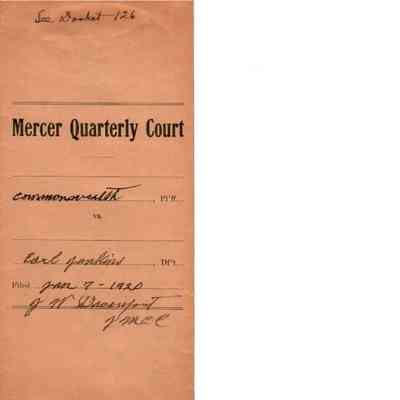 See Docket 126
Mercer Quarterly Court
Commonwealth, Pl'ff.
vs.
Earl Jenkins, Df't.
Filed Jan 7 - 1920
J W Davenport
J M C C